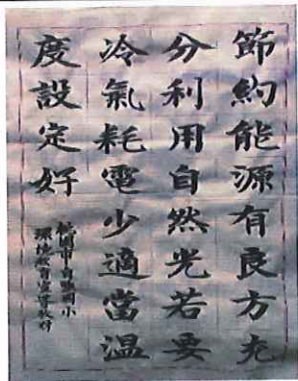 節約能源有良方充
分利用自然光若要
冷氣耗電少適當溫
度設定好
桃園市自強國小
環境教育宣導教材